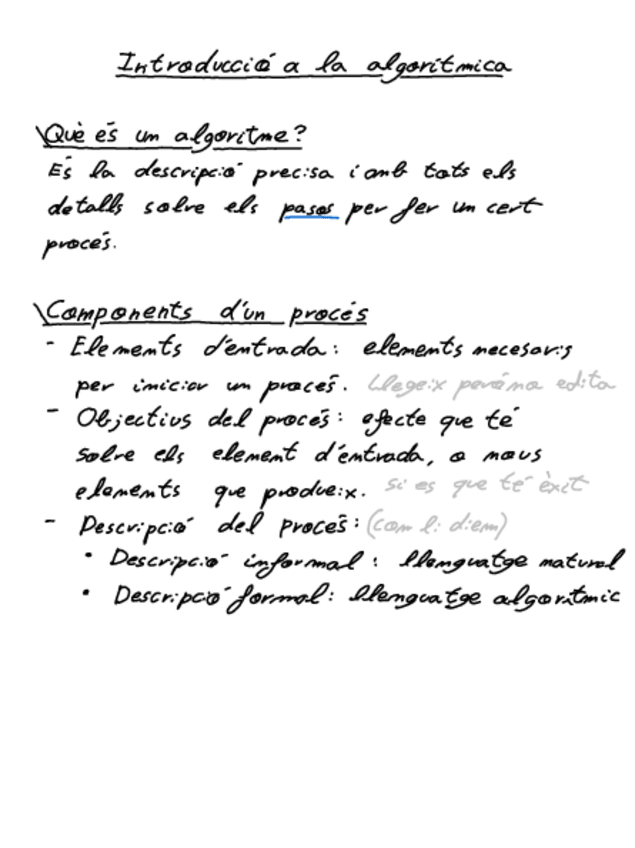 Introducció a la algorítmica
Què és un algoritme?
És la descripció precisa i amb tots els
detalls sobre els pasos per fer un cert
procés.
Components d'un procés
- Elements d'entrada: elements necesaris
per iniciar un procés. Llegeix però no edita
- Objectius del procés: efecte que té
sobre els element d'entrada, o nous
elements que produeix. si es que té èxit
- Descripció del procés: (com li diem)
• Descripció informal: llenguatge natural
• Descripció formal: llenguatge algorítmic